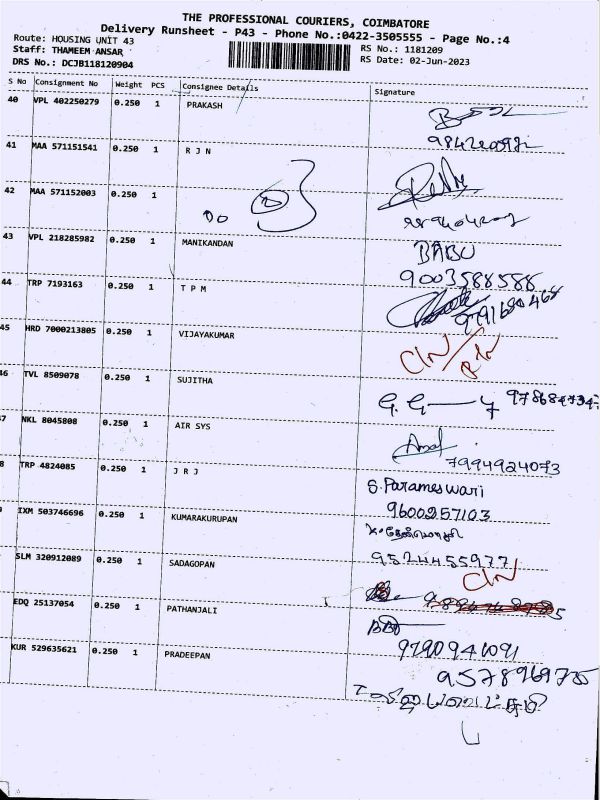 THE PROFESSIONAL COURIERS, COIMBATORE
Delivery Runsheet - P43 - Phone No.:0422-3505555 - Page No.:4
Route: HOUSING UNIT 43
RS No.: 1181209
Staff: THAMEEM ANSAR
RS Date: 02-Jun-2023
DRS No.: DCJB118120904
S No Consignment No Weight PCS Consignee Details Signature
40 VPL 402250279 0.250 1 PRAKASH
41 MAA 571151541 0.250 1 R J N
42 MAA 571152003 0.250 1 Do
43 VPL 218285982 0.250 1 MANIKANDAN BABU
9003588588
44 TRP 7193163 0.250 1 T P M
45 HRD 7000213805 0.250 1 VIJAYAKUMAR
46 TVL 8509078 0.250 1 SUJITHA
7 NKL 8045808 0.250 1 AIR SYS
7994924073
8 TRP 4824085 0.250 1 J R J S. Parameswari
9600257103
IXM 503746696 0.250 1 KUMARAKURUPAN
9524455977
SLM 320912089 0.250 1 SADAGOPAN
EDQ 25137054 0.250 1 PATHANJALI
9790941091
KUR 529635621 0.250 1 PRADEEPAN